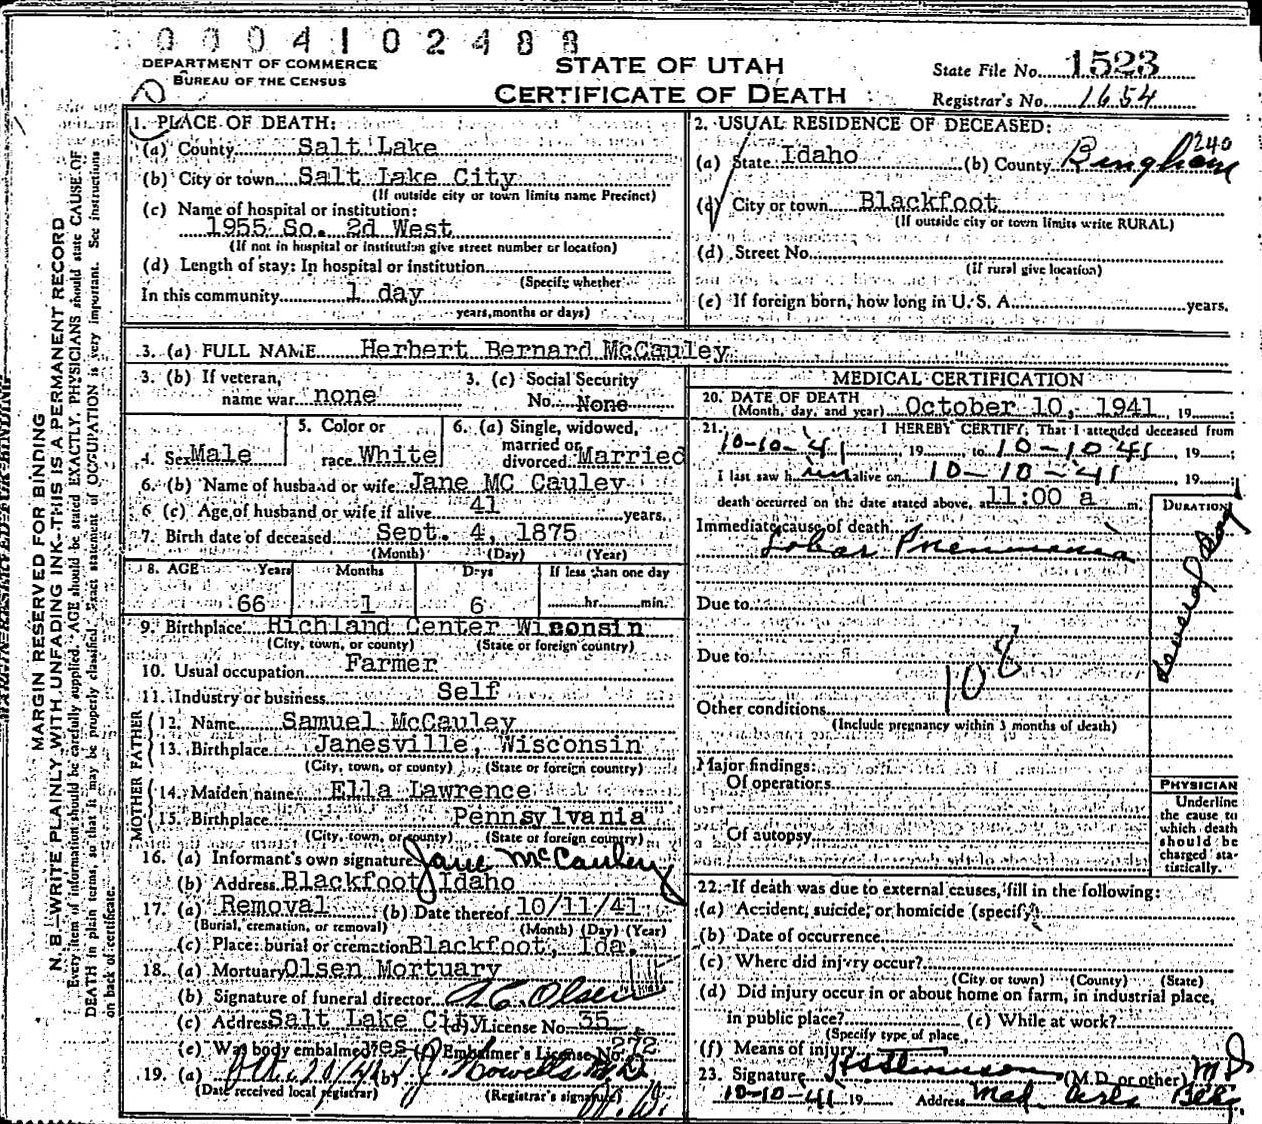 0004102488
DEPARTMENT OF COMMERCE
BUREAU OF THE CENSUS
STATE OF UTAH
CERTIFICATE OF DEATH
State File No. 1523
Registrar's No. 1654
1. PLACE OF DEATH:
(a) County Salt Lake
(b) City or town Salt Lake City
(If outside city or town limits name Precinct)
(c) Name of hospital or institution:
1955 So. 2d West
(If not in hospital or institution give street number or location)
(d) Length of stay: In hospital or institution
(Specify whether
In this community 1 day
years, months or days)
2. USUAL RESIDENCE OF DECEASED:
240
(a) State Idaho (b) County Bingham
(c) City or town Blackfoot
(If outside city or town limits write RURAL)
(d) Street No.
(If rural give location)
(e) If foreign born, how long in U. S. A. years.
3. (a) FULL NAME Herbert Bernard McCauley
3. (b) If veteran, name war none
3. (c) Social Security No. None
4. Sex Male
5. Color or race White
6. (a) Single, widowed, married or divorced Married
6. (b) Name of husband or wife Jane MC Cauley
6 (c) Age of husband or wife if alive 41 years.
7. Birth date of deceased Sept. 4, 1875
(Month) (Day) (Year)
8. AGE Years Months Days If less than one day
66 1 6 hr. min.
9. Birthplace Richland Center Wisconsin
(City, town, or county) (State or foreign country)
10. Usual occupation Farmer
11. Industry or business Self
FATHER
12. Name Samuel McCauley
13. Birthplace Janesville, Wisconsin
(City, town, or county) (State or foreign country)
MOTHER
14. Maiden name Ella Lawrence
15. Birthplace Pennsylvania
(City, town, or county) (State or foreign country)
16. (a) Informant's own signature Jane McCauley
(b) Address Blackfoot Idaho
17. (a) Removal (b) Date thereof 10/11/41
(Burial, cremation, or removal) (Month) (Day) (Year)
(c) Place: burial or cremation Blackfoot, Ida.
18. (a) Mortuary Olsen Mortuary
(b) Signature of funeral director A C. Olsen
(c) Address Salt Lake City (d) License No. 35
(e) Was body embalmed? yes (f) Embalmer's License No. 272
19. (a) (b) Howells M D
(Date received local registrar) (Registrar's signature)
MEDICAL CERTIFICATION
20. DATE OF DEATH
(Month, day, and year) October 10, 1941, 19
21. I HEREBY CERTIFY, That I attended deceased from
10-10-41, 19 to 10-10 41, 19
I last saw him alive on 10-10-41, 19
death occurred on the date stated above, at 11:00 a m.
DURATION
Immediate cause of death
Lobar Pneumonia
Several days
Due to
Due to
108
Other conditions
(Include pregnancy within 3 months of death)
Major findings:
Of operations
Of autopsy
PHYSICIAN
Underline
the cause to
which death
should be
charged sta-
tistically.
22. If death was due to external causes, fill in the following:
(a) Accident, suicide, or homicide (specify)
(b) Date of occurrence
(c) Where did injury occur?
(City or town) (County) (State)
(d) Did injury occur in or about home on farm, in industrial place,
in public place? (e) While at work?
(Specify type of place
(f) Means of injury
23. Signature (M.D. or other) M D
10-10-41 19 Address Med. Arts Bldg.
MARGIN RESERVED FOR BINDING
N. B.—WRITE PLAINLY WITH UNFADING INK—THIS IS A PERMANENT RECORD
Every item of information should be carefully supplied. AGE should be stated EXACTLY. PHYSICIANS should state CAUSE OF
DEATH in plain terms, so that it may be properly classified. Exact statement of OCCUPATION is very important. See instructions
on back of certificate.